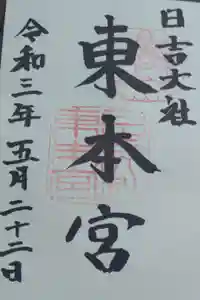 日吉大社
東本宮
令和三年五月二十二日